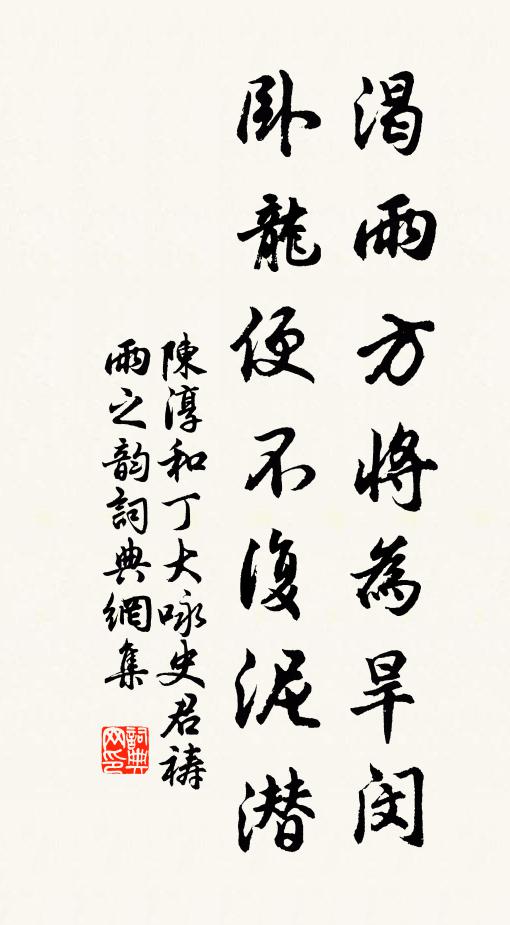 渴雨方將為旱閔
卧龍便不復泥潛
陳淳和丁大咏史君禱
雨之韵詞典網集
詞典
网印